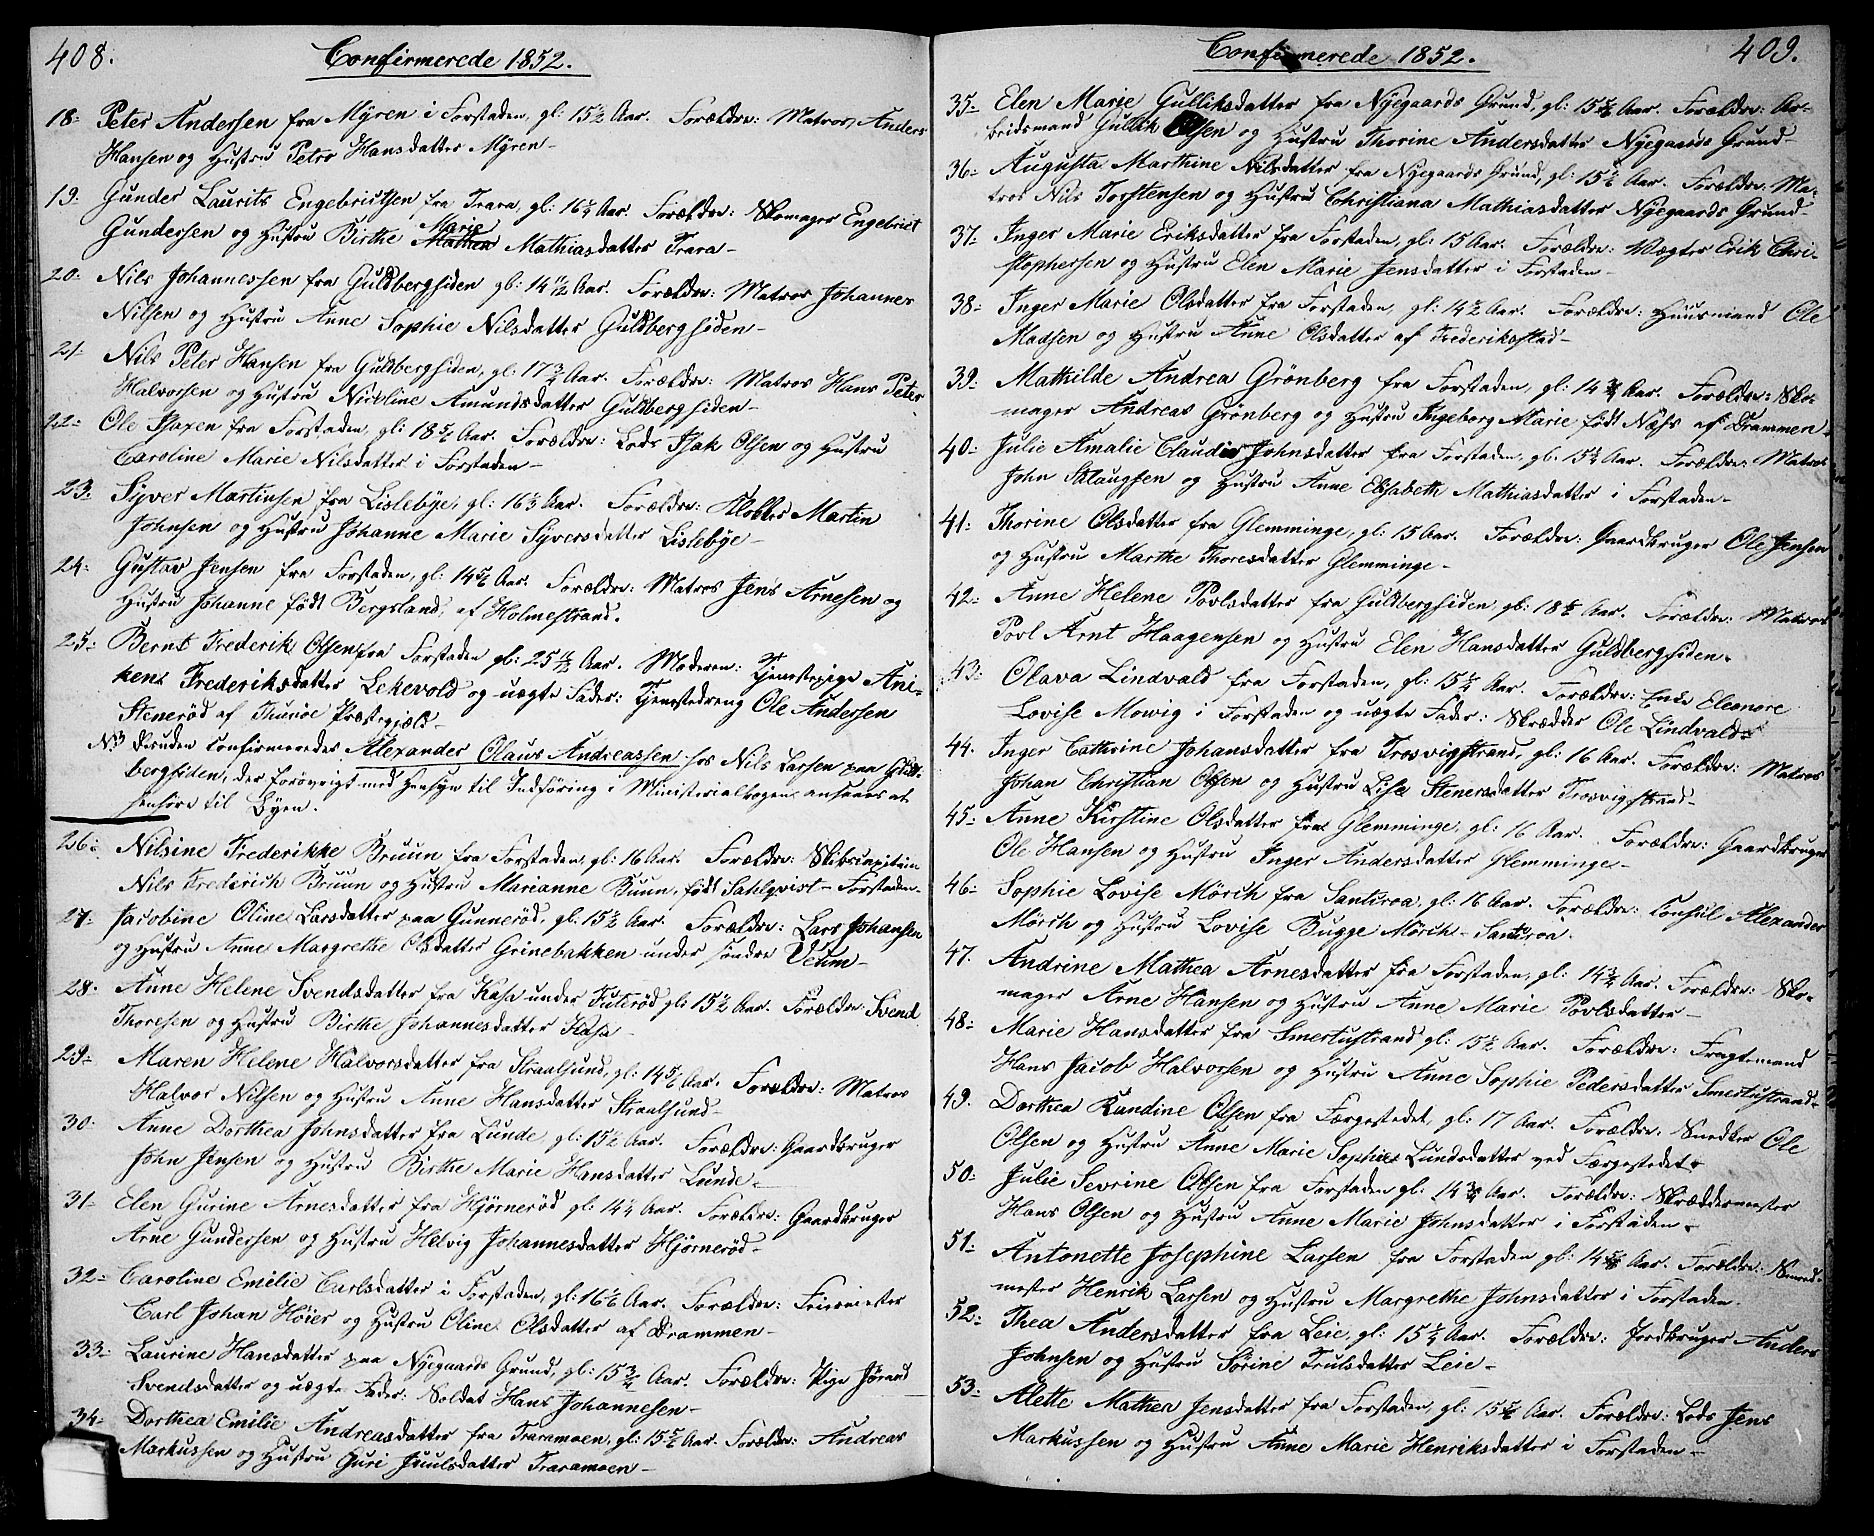 408.
Confirmerede 1852.
18. Peter Andersen fra Myren i Forstaden, gl: 15½ Aar. Forældre: Matros Anders
Hansen og Hustru Petro Hansdatter Myren
19. Gunder Laurits Engebrictsen fra Trara, gl: 16¼ Aar. Forældre: Skomager Engebrict
Gundersen og Hustru Birthe Marie Mathiasdatter Trara
20. Nils Johannessen fra Guldbergsiden gl: 14 11/12 Aar. Forældre: Matros Johannes
Nilsen og Hustru Anne Sophie Nilsdatter Guldbergsiden
21. Nils Peter Hansen fra Guldbergsiden, gl: 17¾ Aar. Forældre: Matros Hans Peter
Halvorsen og Hustru Nicoline Amundsdatter Guldbergsiden
22. Ole Isaxen fra Forstaden, gl: 18 Aar. Forældre: Lods Isak Olsen og Hustru
Caroline Marie Nilsdatter i Forstaden
23. Syver Martinsen fra Lislebye, gl: 16 Aar. Forældre: Martin
Johnsen og Hustru Johanne Marie Syversdatter Lislebye
24. Gustav Jensen fra Forstaden, gl: 14 Aar. Forældre: Matros Jens Arnesen og
Hustru Johanne født Bergsland, af Holmestrand.
25. Bernt Frederik Olsen fra Forstaden gl: 25 Aar. Moderen: Tjenestepige Ani-
kens Frederiksdatter Lekevold og uægte Fader: Tjenestedreng Ole Andersen
Stenerød af Thunøe Præstegjæld
NB desuden confirmeredes Alexander Olaus Andreassen hos Nils Larsen paa Guld-
bergsiden, der forøvrigt med Hensyn til Indføring i Ministerialbogen ansees at
henhøre til Byen.
26. Nilsine Frederikke Bruun fra Forstaden, gl: 16 Aar. Forældre: Skibscapitain
Nils Frederich Bruun og Hustru Marianne Buun, født Sahlqvist Forstaden
27. Jacobine Oline Larsdatter paa Gunnerød, gl: 15½ Aar. Forældre: Lars Johansen
og Hustru Anne Margrethe Olsdatter Grinebakken under søndre Veum
28. Anne Helene Svendsdatter fra Kasa under gl: 15½ Aar. Forældre: Svend
Thoresen og Hustru Birthe Johannesdatter Kasa
29. Maren Helene Halvorsdatter fra Straalsund, gl: 14 Aar. Forældre: Matros
Halvor Nilsen og Hustru Anne Hansdatter Straalsund
30. Anne Dorthea Johnsdatter fra Lunde, gl: 15½ Aar. Forældre: Gaardbruger
John Jensen og Hustru Birthe Marie Hansdatter Lunde
31. Elen Gurine Arnesdatter fra Hjørnerød gl: 14¼ Aar. Forældre: Gaardbruger
Arne Gundersen og Hustru Helvig Johannesdatter Hjørnerød
32. Caroline Emilie Carlsdatter i Forstaden, gl: 16 Aar. Forældre: Feiermester
Carl Johan Høier og Hustru Oline Olsdatter af Drammen
33. Laurine Hansdatter paa Nyegaards Grund, gl: 15¾ Aar. Forældre: Pige Jørand
Svendsdatter og uægte Fader: Soldat Hans Johannesen
34. Dorthea Emilie Andreasdatter fra Traramoen, gl: 15 Aar. Forældre: Andreas
Markussen og Hustru Guri Juulsdatter Traramoen
409.
Confirmerede 1852.
35. Elen Marie Gulliksdatter fra Nyegaards Grund, gl: 15 Aar. Forældre: Ar-
beidsmand Gullik Olsen og Hustru Thorine Andersdatter Nyegaards Grund
36. Augusta Marthine Nilsdatter fra Nyegaards Grund, gl: 15 Aar. Forældre: Ma-
tros Nils Torstensen og Hustru Christiana Mathiasdatter Nyegaards Grund
37. Inger Marie Eriksdatter fra Forstaden, gl: 15 Aar. Forældre: Vægter Erik Chri-
stophersen og Hustru Elen Marie Jensdatter i Forstaden
38. Inger Marie Olsdatter fra Forstaden, gl: 14½ Aar. Forældre: Huusmand Ole
Madsen og Hustru Anne Olsdatter af Frederikstad
39. Mathilde Andrea Grønberg fra Forstaden, gl: 14¾ Aar. Forældre: Sko-
mager Andreas Grønberg og Hustru Ingeborg Marie født Næss af Drammen
40. Julie Amalie Claudia Johnsdatter fra Forstaden, gl: 15¼ Aar. Forældre: Matros
John Aslaugsen og Hustru Anne Elisabeth Mathiasdatter i Forstaden
41. Thorine Olsdatter fra Glemminge, gl: 15 Aar. Forældre: Gaardbruger Ole Jensen
og Hustru Marthe Thoresdatter Glemminge
42. Anne Helene Povlsdatter fra Guldbergsiden, gl: 18 Aar. Forældre: Matros
Povl Arnt Haagensen og Hustru Elen Hansdatter Guldbergsiden.
43. Olava Lindvald fra Forstaden, gl: 15¼ Aar. Forældre: Enke Eleonore
Lovise Mowig i Forstaden og uægte Fader: Skrædder Ole Lindvald
44. Inger Cathrine Johansdatter fra Trosvigstrand, gl: 16 Aar. Forældre: Matros
Johan Christian Olsen og Hustru Lise Stenersdatter Trosvigstrand
45. Anne Kirstine Olsdatter fra Glemminge, gl: 16 Aar. Forældre: Gaardbruger
Ole Hansen og Hustru Inger Andersdatter Glemminge
46. Sophie Lovise Mörch fra Santiroa, gl: 16 Aar. Forældre: Consul Alexander
Mörch og Hustru Lovise Bugge Mörch Santiroa.
47. Andrine Mathea Arnesdatter fra Forstaden, gl: 14¾ Aar. Forældre: Sko-
mager Arne Hansen og Hustru Anne Marie Povlsdatter
48. Marie Hansdatter fra Smertustrand gl: 15½ Aar. Forældre: Fragtemand
Hans Jacob Halvorsen og Hustru Anne Sophie Pedersdatter Smertustrand
49. Dorthea Randine Olsen fra Færgestedet, gl: 17 Aar. Forældre: Snedker Ole
Olsen og Hustru Anne Marie Sophie Lundsdatter ved Færgestedet
50. Julie Sevrine Olsen fra Forstaden gl: 14¾ Aar. Forældre: Skræddermester
Hans Olsen og Hustru Anne Marie Johnsdatter i Forstaden.
51. Antonette Josephine Larsen fra Forstaden gl: 14 Aar. Forældre: Smed-
mester Henrik Larsen og Hustru Margrethe Johnsdatter i Forstaden.
52. Thea Andersdatter fra Leie, gl: 15¼ Aar. Forældre: Jordbruger Anders
Johnsen og Hustru Sørine Trulsdatter Leie
53. Alette Mathea Jensdatter fra Forstaden, gl: 15 Aar. Forældre: Lods Jens
Markussen og Hustru Anne Marie Henriksdatter i Forstaden